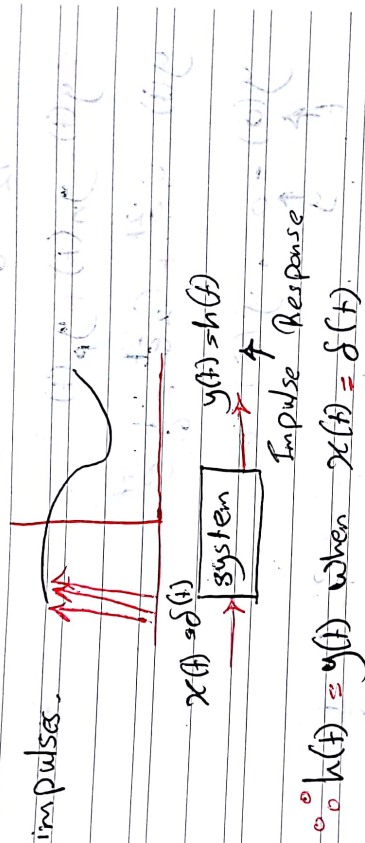 impulses.
x(t) = δ(t)
system
y(t) = h(t)
Impulse Response
∴ h(t) = y(t) when x(t) = δ(t).